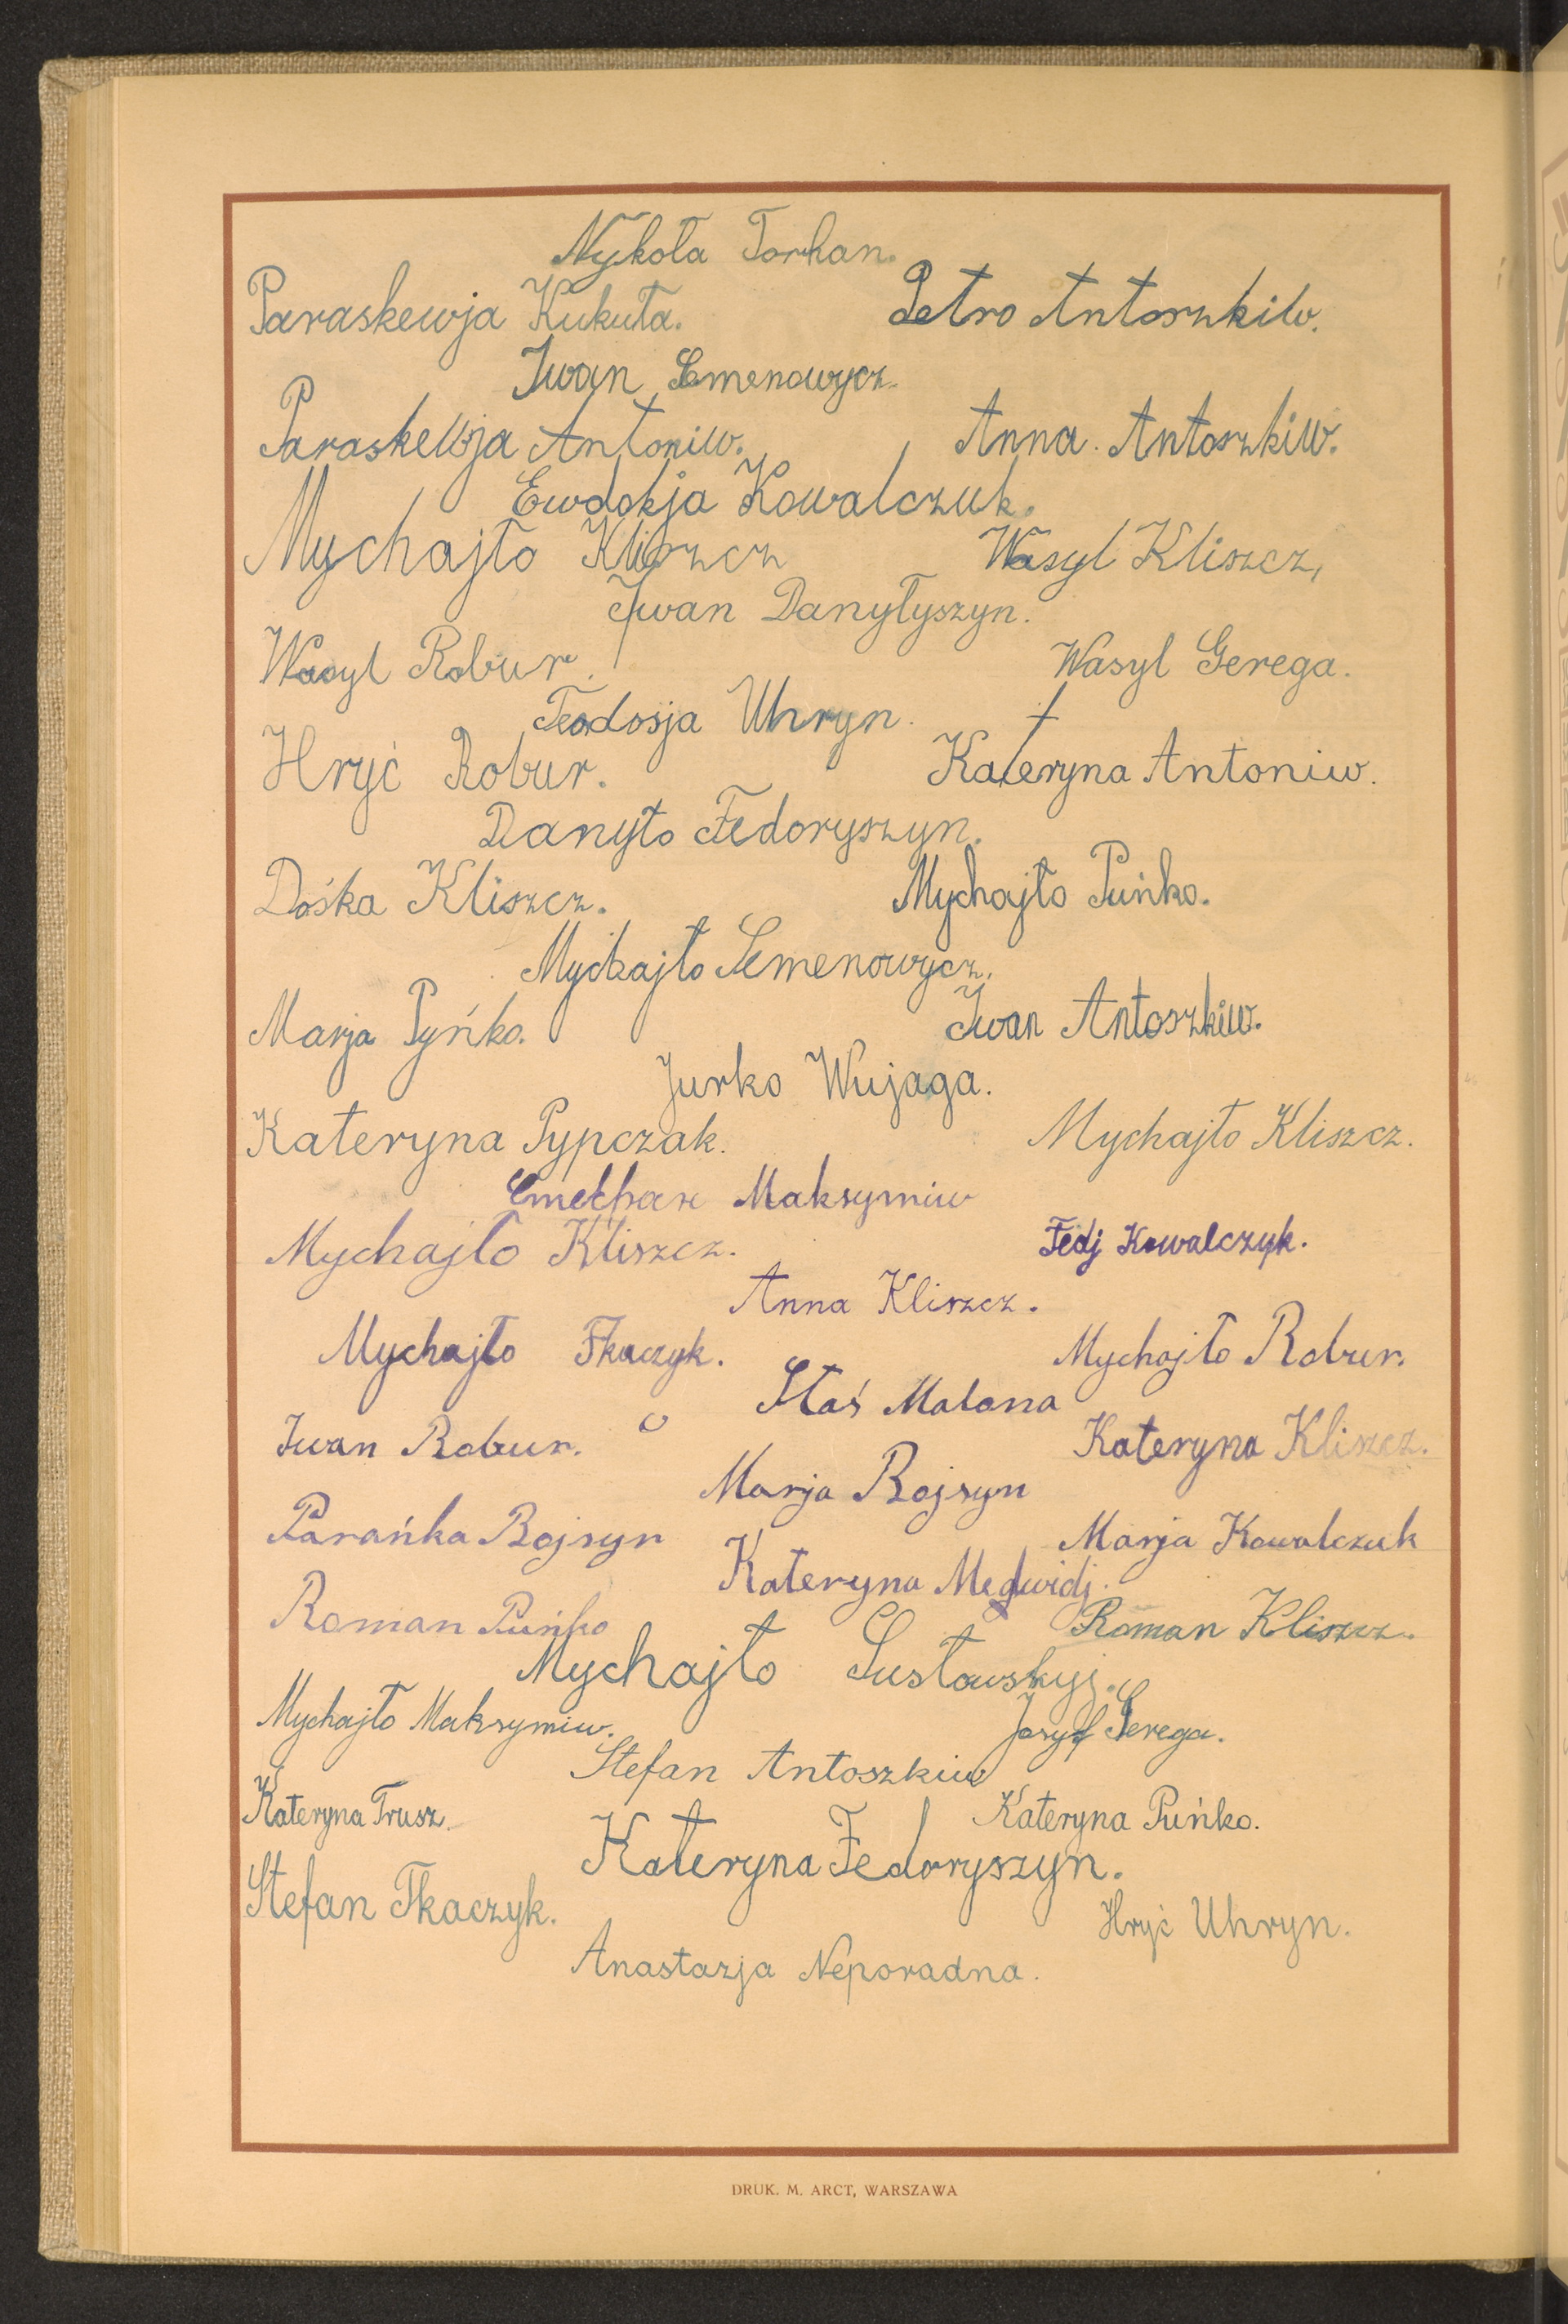 Nykoła Torhan.
Paraskewja Kukuła. Petro Antoszkiw.
Iwan Semenowycz.
Paraskewja Antoniw. Anna Antoszkiw.
Ewdokja Kowalczuk.
Mychajło Kliszcz Wasyl Kliszcz,
Iwan Danyłyszyn.
Wasyl Robur. Wasyl Gerega.
Teodosja Uhryn.
Hryć Robur. Kateryna Antoniw.
Danyło Fedoryszyn.
Dośka Kliszcz. Mychajło Puńko.
Mychajło Semenowycz.
Marja Pyńko. Iwan Antoszkiw.
Jurko Wujaga.
Kateryna Pypczak. Mychajło Kliszcz.
Maksymiw
Mychajło Kliszcz. Fedj Kowalczyk.
Anna Kliszcz.
Mychajło Tkaczyk. Mychajło Robur.
Staś Malana
Iwan Robur. Kateryna Kliszcz.
Marja Bojsyn
Parańka Bojsyn Marja Kowalczuk
Kateryna Medwidj.
Roman Puńko Roman Kliszcz.
Mychajło Susłowskyj.
Mychajło Maksymiw. Josyf Gerega.
Stefan Antoszkiw
Kateryna Trusz. Kateryna Puńko.
Kateryna Fedoryszyn.
Stefan Tkaczyk. Hryć Uhryn.
Anastazja Neporadna.
DRUK. M. ARCT, WARSZAWA